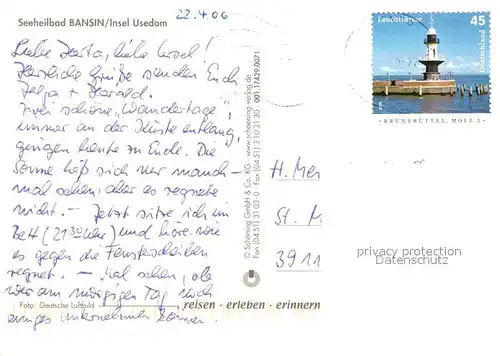 22.4.06
Seeheilbad BANSIN/Insel Usedom
Liebe Herta, liebe
Herzliche Grüße senden Euch
Helga + Harald.
Zwei schöne „Wandertage",
immer an der Küste entlang,
gingen heute zu Ende. Die
Sonne ließ sich nur manch-
mal sehen, aber es regnete
nicht. – Jetzt sitze ich im
Bett (21 30 Uhr) und höre wie
es gegen die Fensterscheiben
regnet. – Mal sehen, ob
wir am morgigen Tag noch
einiges unternehmen können.
Foto: Deutsche Luftbild
reisen - erleben - erinnern
© Schöning GmbH & Co. KG · www.schoening-verlag.de
Fax (0451) 31 03 0 · Fax (0451) 3103130 001.17429.0071
Leuchttürme
45
Deutschland
BRUNSBÜTTEL, MOLE 1
H. Mer
St. M
3911
privacy protection
Datenschutz